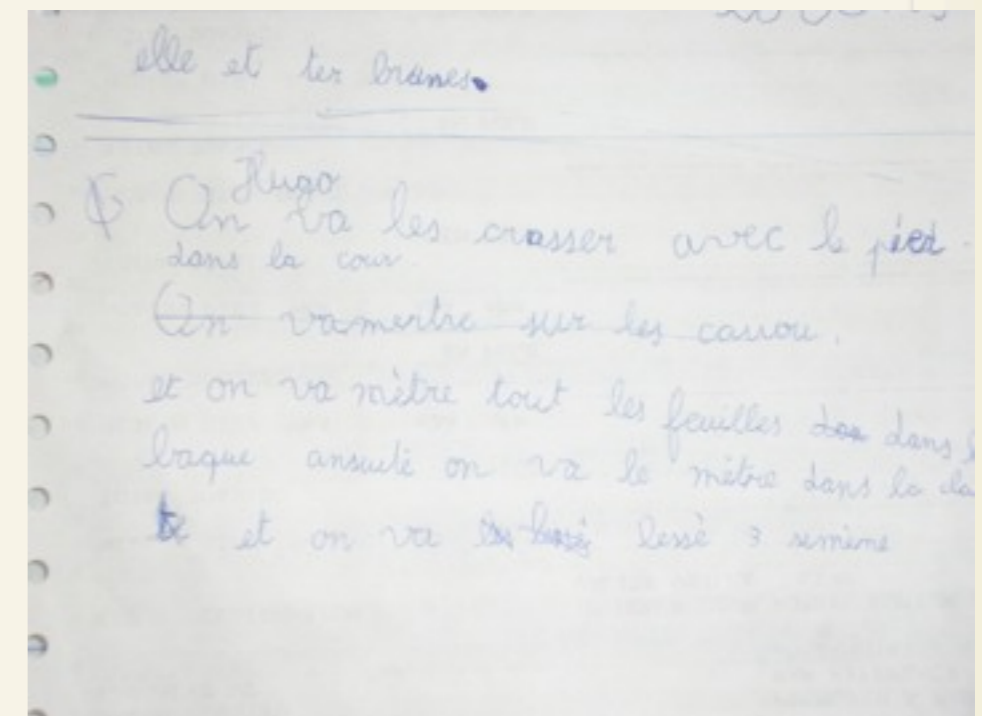 elle et ter branes.
Hugo
On va les crasser avec le pied.
dans la cour
On va mertre sur les carrou.
et on va mètre tout les feuilles dans
baque ansuite on va le mètre dans la
et on va lessé 3 semine